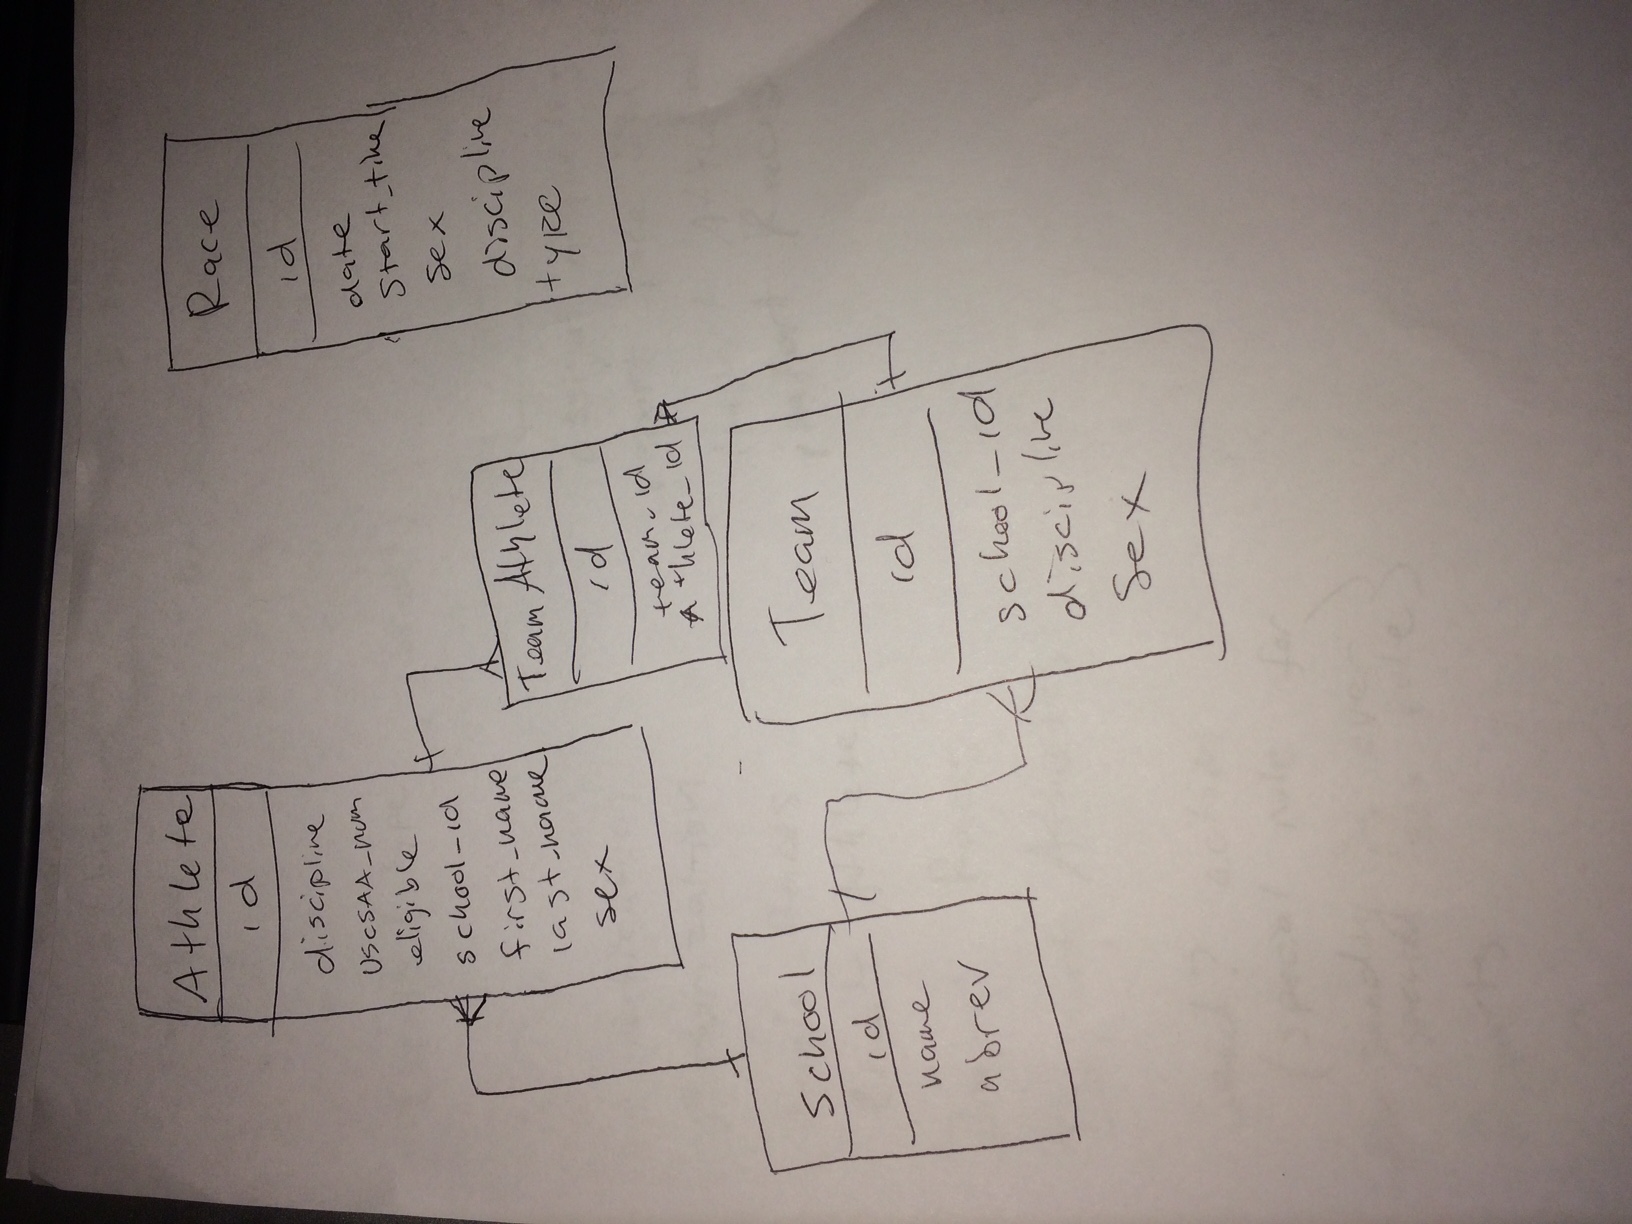 Athlete
id
discipline
USCSAA_num
eligible
school_id
first_name
last_name
sex
Race
id
date
start_time
sex
discipline
type
Team Athlete
id
team_id
athlete_id
School
id
name
abrev
Team
id
school_id
discipline
Sex